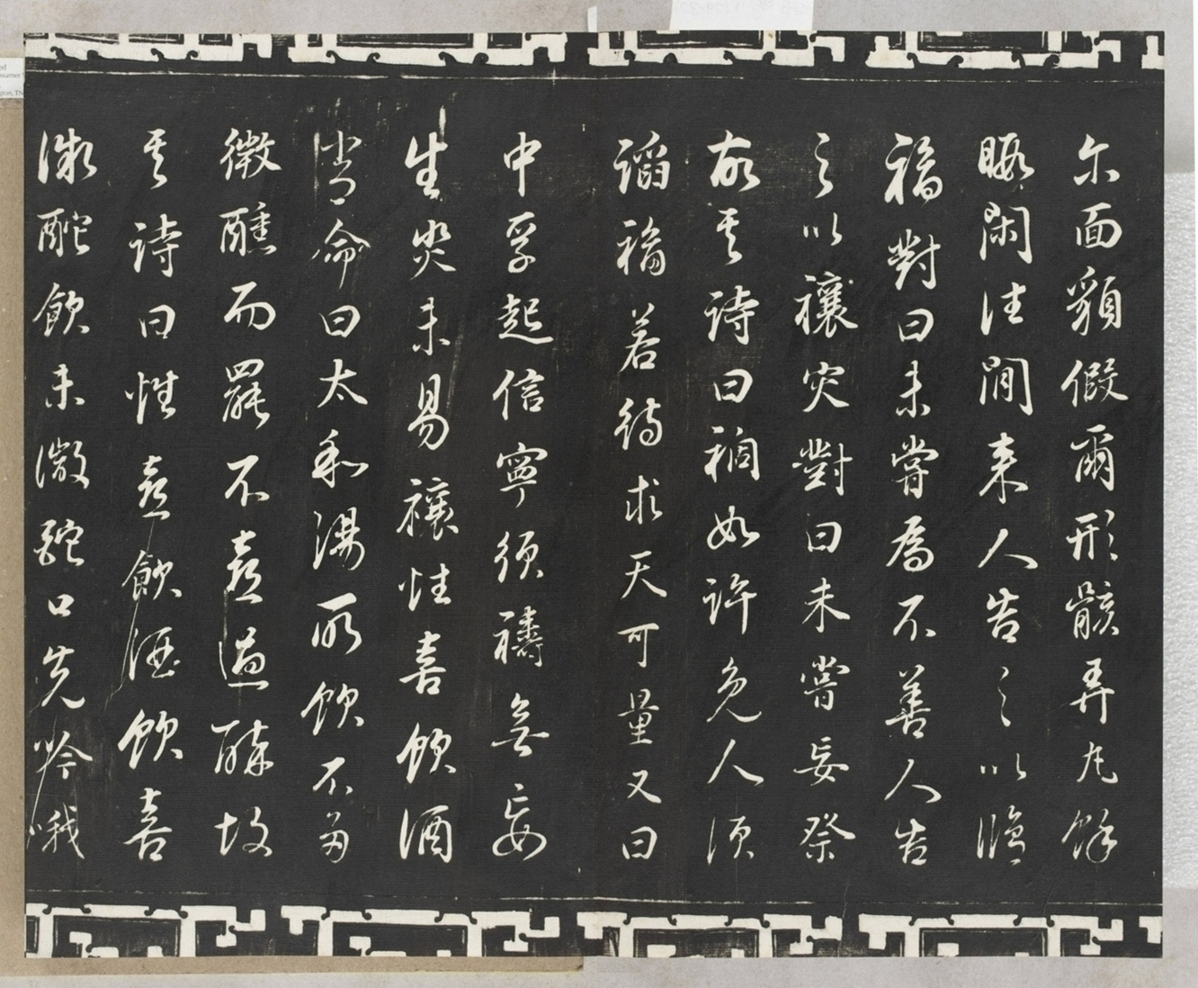 尔面貌假爾形骸弄丸餘
暇閑往閒来人告之以脩
福對曰未嘗為不善人告
之以禳灾對曰未嘗妄祭
故其詩曰禍如許免人須
諂福若待求天可量又曰
中孚起信寧須禱無妄
生災未易禳性喜飲酒
嘗命曰太和湯所飲不多
微醺而罷不喜過醉故
其詩曰性喜飲酒飲喜
微酡飲未微酡口先吟哦